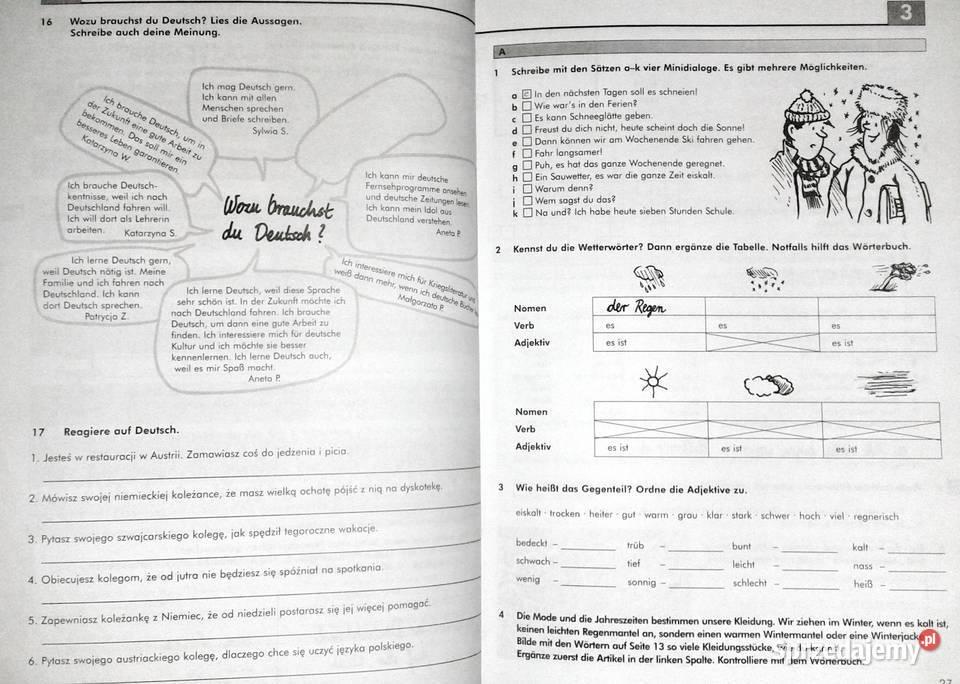 16 Wozu brauchst du Deutsch? Lies die Aussagen.
Schreibe auch deine Meinung.
Ich brauche Deutsch, um in
der Zukunft eine gute Arbeit zu
bekommen. Das soll mir ein
besseres Leben garantieren.
Katarzyna W.
Ich mag Deutsch gern.
Ich kann mit allen
Menschen sprechen
und Briefe schreiben.
Sylwia S.
Ich brauche Deutsch-
kentnisse, weil ich nach
Deutschland fahren will.
Ich will dort als Lehrerin
arbeiten. Katarzyna S.
Wozu brauchst
du Deutsch?
Ich kann mir deutsche
Fernsehprogramme ansehen
und deutsche Zeitungen lesen.
Ich kann mein Idol aus
Deutschland verstehen.
Aneta P.
Ich lerne Deutsch gern,
weil Deutsch nötig ist. Meine
Familie und ich fahren nach
Deutschland. Ich kann
dort Deutsch sprechen.
Patrycja Z.
Ich lerne Deutsch, weil diese Sprache
sehr schön ist. In der Zukunft möchte ich
nach Deutschland fahren. Ich brauche
Deutsch, um dann eine gute Arbeit zu
finden. Ich interessiere mich für deutsche
Kultur und ich möchte sie besser
kennenlernen. Ich lerne Deutsch auch,
weil es mir Spaß macht.
Aneta P.
Ich interessiere mich für Kriegsliteratur und
weiß dann mehr, wenn ich deutsche Bücher
Małgorzata P.
17 Reagiere auf Deutsch.
1. Jesteś w restauracji w Austrii. Zamawiasz coś do jedzenia i picia.
2. Mówisz swojej niemieckiej koleżance, że masz wielką ochotę pójść z nią na dyskotekę.
3. Pytasz swojego szwajcarskiego kolegę, jak spędził tegoroczne wakacje.
4. Obiecujesz kolegom, że od jutra nie będziesz się spóźniał na spotkania.
5. Zapewniasz koleżankę z Niemiec, że od niedzieli postarasz się jej więcej pomagać.
6. Pytasz swojego austriackiego kolegę, dlaczego chce się uczyć języka polskiego.
3
A
1 Schreibe mit den Sätzen a–k vier Minidialoge. Es gibt mehrere Möglichkeiten.
a In den nächsten Tagen soll es schneien!
b Wie war's in den Ferien?
c Es kann Schneeglätte geben.
d Freust du dich nicht, heute scheint doch die Sonne!
e Dann können wir am Wochenende Ski fahren gehen.
f Fahr langsamer!
g Puh, es hat das ganze Wochenende geregnet.
h Ein Sauwetter, es war die ganze Zeit eiskalt.
i Warum denn?
j Wem sagst du das?
k Na und? Ich habe heute sieben Stunden Schule.
2 Kennst du die Wetterwörter? Dann ergänze die Tabelle. Notfalls hilft das Wörterbuch.
Nomen der Regen
Verb es es es
Adjektiv es ist es ist
Nomen
Verb
Adjektiv es ist es ist es ist
3 Wie heißt das Gegenteil? Ordne die Adjektive zu.
eiskalt · trocken · heiter · gut · warm · grau · klar · stark · schwer · hoch · viel · regnerisch
bedeckt – trüb – bunt – kalt –
schwach – tief – leicht – nass –
wenig – sonnig – schlecht – heiß –
4 Die Mode und die Jahreszeiten bestimmen unsere Kleidung. Wir ziehen im Winter, wenn es kalt ist,
keinen leichten Regenmantel an, sondern einen warmen Wintermantel oder eine Winterjacke
Bilde mit den Wörtern auf Seite 13 so viele Kleidungsstücke,
Ergänze zuerst die Artikel in der linken Spalte. Kontrolliere mit dem Wörterbuch.
Sprzedajemy.pl